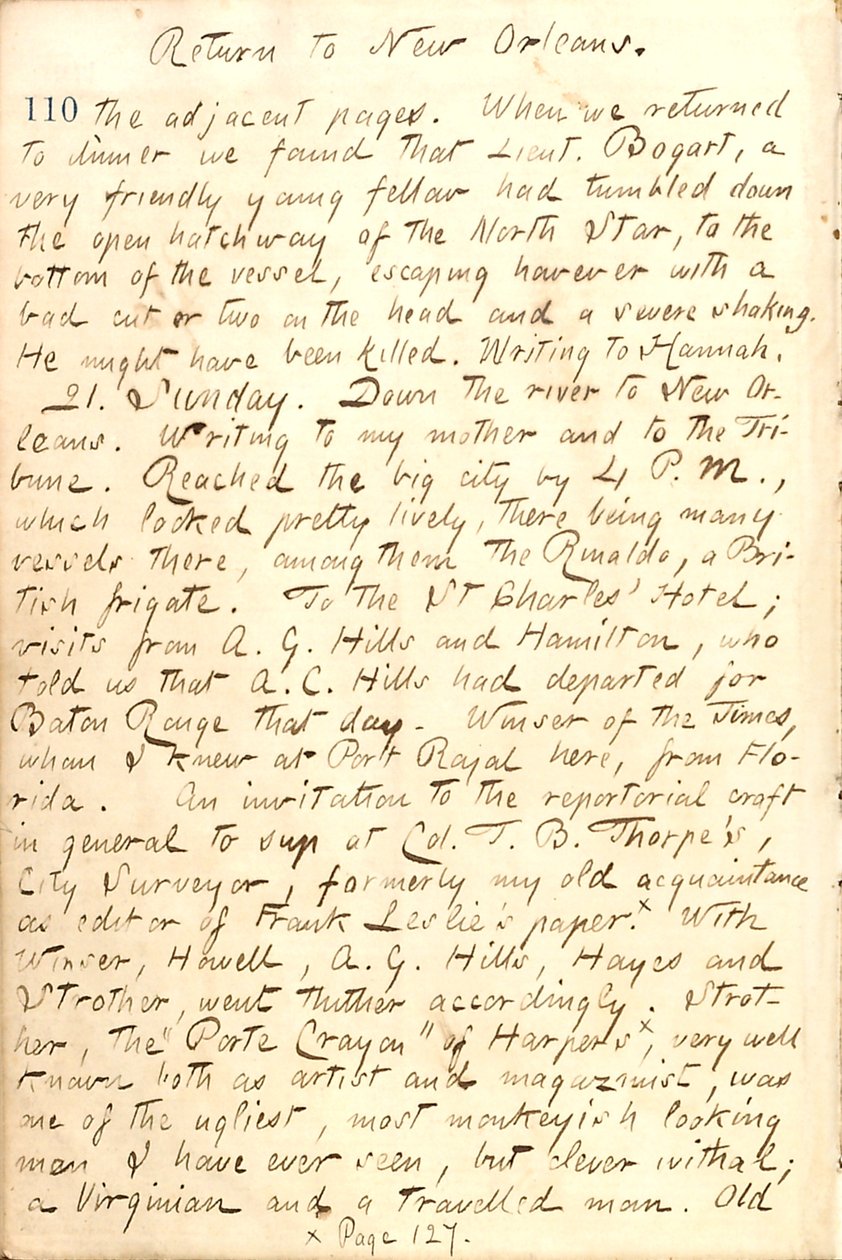 Return to New Orleans.
110 the adjacent pages. When we returned
to dinner we found that Lieut. Bogart, a
very friendly young fellow had tumbled down
the open hatchway of the North Star, to the
bottom of the vessel, escaping however with a
bad cut or two on the head and a severe shaking.
He might have been killed. Writing to Hannah.
21. Sunday. Down the river to New Or-
leans. Writing to my mother and to the Tri-
bune. Reached the big city by 4 P. M.,
which looked pretty lively, there being many
vessels there, among them the Rinaldo, a Bri-
tish frigate. To the St Charles' Hotel;
visits from A. G. Hills and Hamilton, who
told us that A. C. Hills had departed for
Baton Rouge that day. Winser of the Times,
whom I knew at Port Royal here, from Flo-
rida. An invitation to the reportorial craft
in general to sup at Col. T. B. Thorpe's,
City Surveyor, formerly my old acquaintance
as editor of Frank Leslie's paper.x With
Winser, Howell, A. G. Hills, Hayes and
Strother, went thither accordingly. Strot-
her, the "Porte Crayon" of Harper'sx, very well
known both as artist and magazinist, was
one of the ugliest, most monkeyish looking
men I have ever seen, but clever withal;
a Virginian and a travelled man. Old
x Page 127.